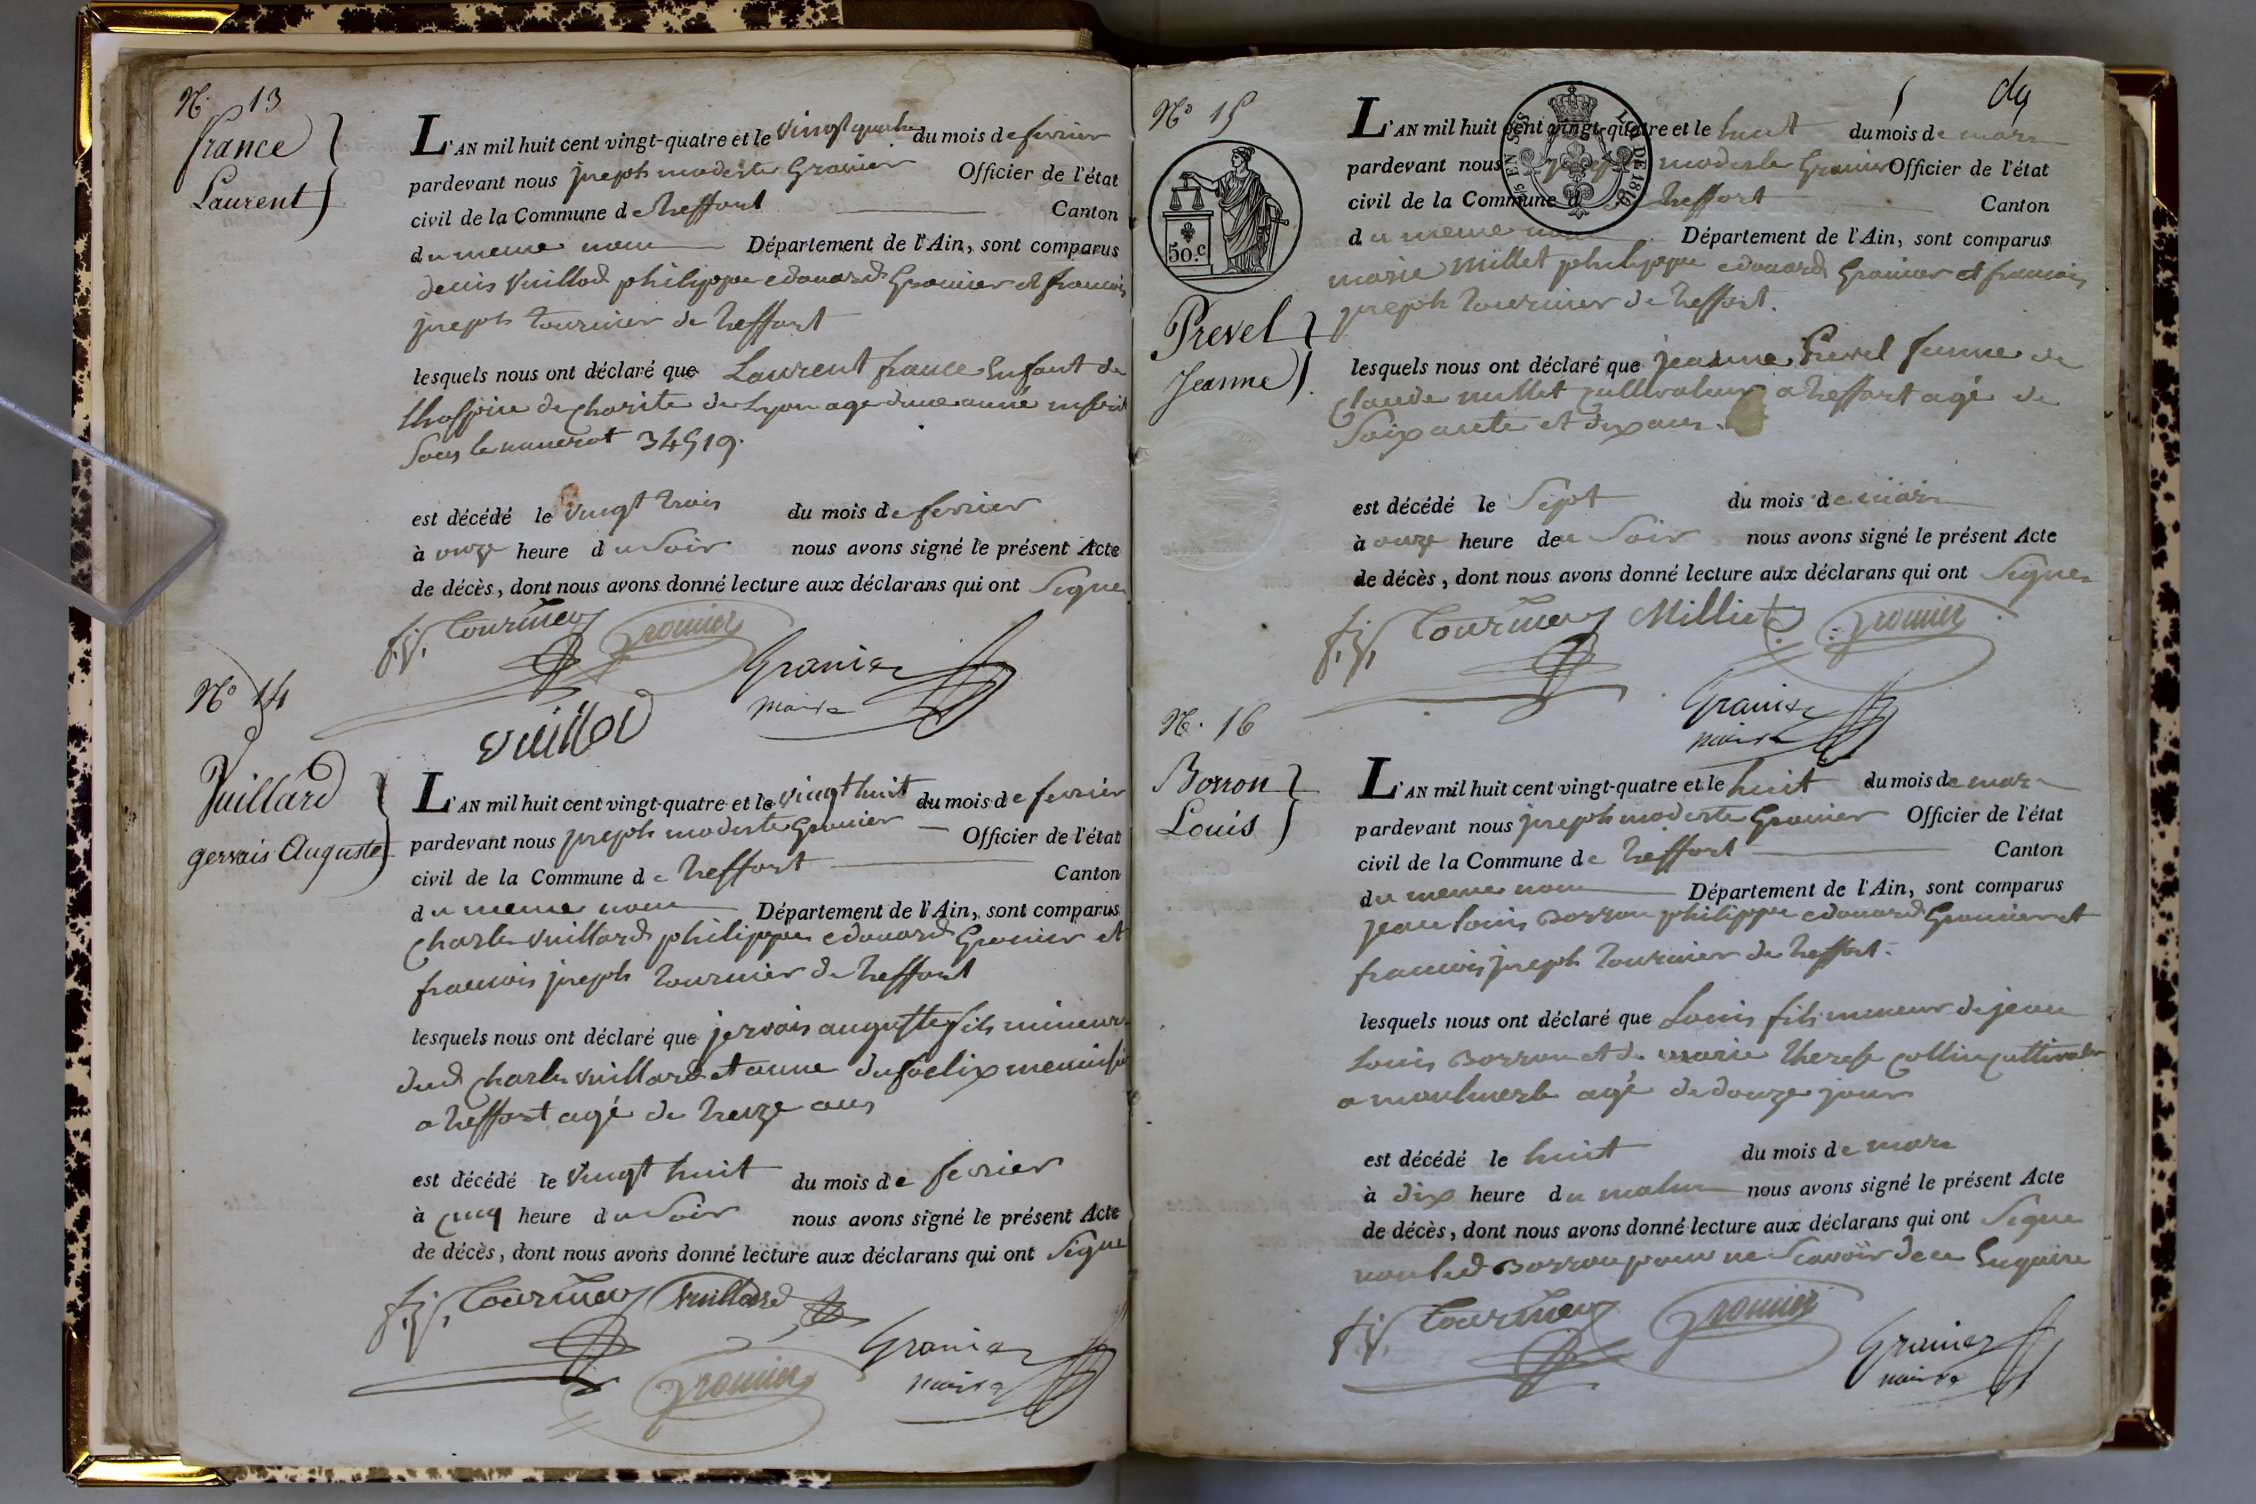 N° 13
france
Laurent
L'AN mil huit cent vingt-quatre et le vingt quatre du mois de fevrier
pardevant nous joseph modeste Gromier Officier de l'état
civil de la Commune de treffort Canton
du meme nom Département de l'Ain, sont comparus
denis Vuillod philippe edouard Gromier et francois
joseph tournier de treffort
lesquels nous ont déclaré que Laurent france Enfant de
lhospice de Charite de Lyon age dune année inscrit
Sous le numerot 34519.
est décédé le vingt trois du mois de fevrier
à onze heure du Soir nous avons signé le présent Acte
de décès, dont nous avons donné lecture aux déclarans qui ont Signe
f.j. tournier Gromier
Gromier
maire
vuillod
N° 14
Vuillard
gervais Auguste
L'AN mil huit cent vingt-quatre et le vingt huit du mois de fevrier
pardevant nous joseph modeste Gromier Officier de l'état
civil de la Commune de treffort Canton
du meme nom Département de l'Ain, sont comparus
Charles Vuillard philippe edouard Gromier et
francois joseph tournier de treffort
lesquels nous ont déclaré que jervais auguste fils mineur
dud Charles vuillard et anne dufaelix
a treffort agé de treize ans
est décédé le vingt huit du mois de fevrier
à cinq heure du Soir nous avons signé le présent Acte
de décès, dont nous avons donné lecture aux déclarans qui ont Signe
f.j. tournier Vuillard
Gromier
Gromier
maire
N° 15
50.c
Prevel
Jeanne
L'AN mil huit cent vingt-quatre et le huit du mois de mars
pardevant nous joseph modeste Gromier Officier de l'état
civil de la Commune de treffort Canton
du meme nom Département de l'Ain, sont comparus
marie Millet philippe edouard Gromier et francois
joseph tournier de treffort.
lesquels nous ont déclaré que jeanne Prevel femme de
Claude millet cultivateur a treffort agé de
Soixante et dix ans.
est décédé le Sept du mois de mars
à onze heure deu Soir nous avons signé le présent Acte
de décès, dont nous avons donné lecture aux déclarans qui ont Signe
f.j. tournier Milliet Gromier
Gromier
maire
N° 16
Borron
Louis
L'AN mil huit cent vingt-quatre et le huit du mois de mars
pardevant nous joseph modeste Gromier Officier de l'état
civil de la Commune de treffort Canton
du meme nom Département de l'Ain, sont comparus
jean louis Borron philippe edouard Gromier et
francois joseph tournier de treffort.
lesquels nous ont déclaré que Louis fils mineur de jean
Louis Borron et de marie therese Collin cultivateur
a agé de douze jours
est décédé le huit du mois de mars
à dix heure du matin nous avons signé le présent Acte
de décès, dont nous avons donné lecture aux déclarans qui ont Signe
non led Borron pour ne Scavoir de ce Enquire
f.j. tournier Gromier
Gromier
maire